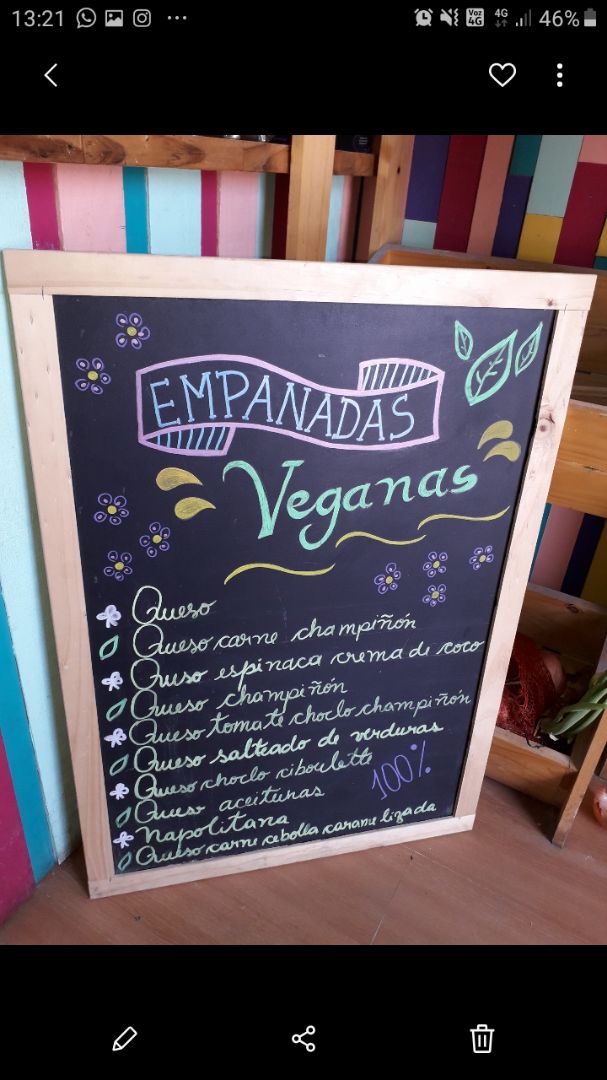 13:21 ... Voz 4G 4G 46%
EMPANADAS
Veganas
Queso
Queso carne champiñón
Quso espinaca crema de coco
Queso champiñón
Queso tomate choclo champiñón
Queso salteado de verduras
Queso choclo ciboulette
Queso aceitunas
100%
Napolitana
Queso carne cebolla caramelizada